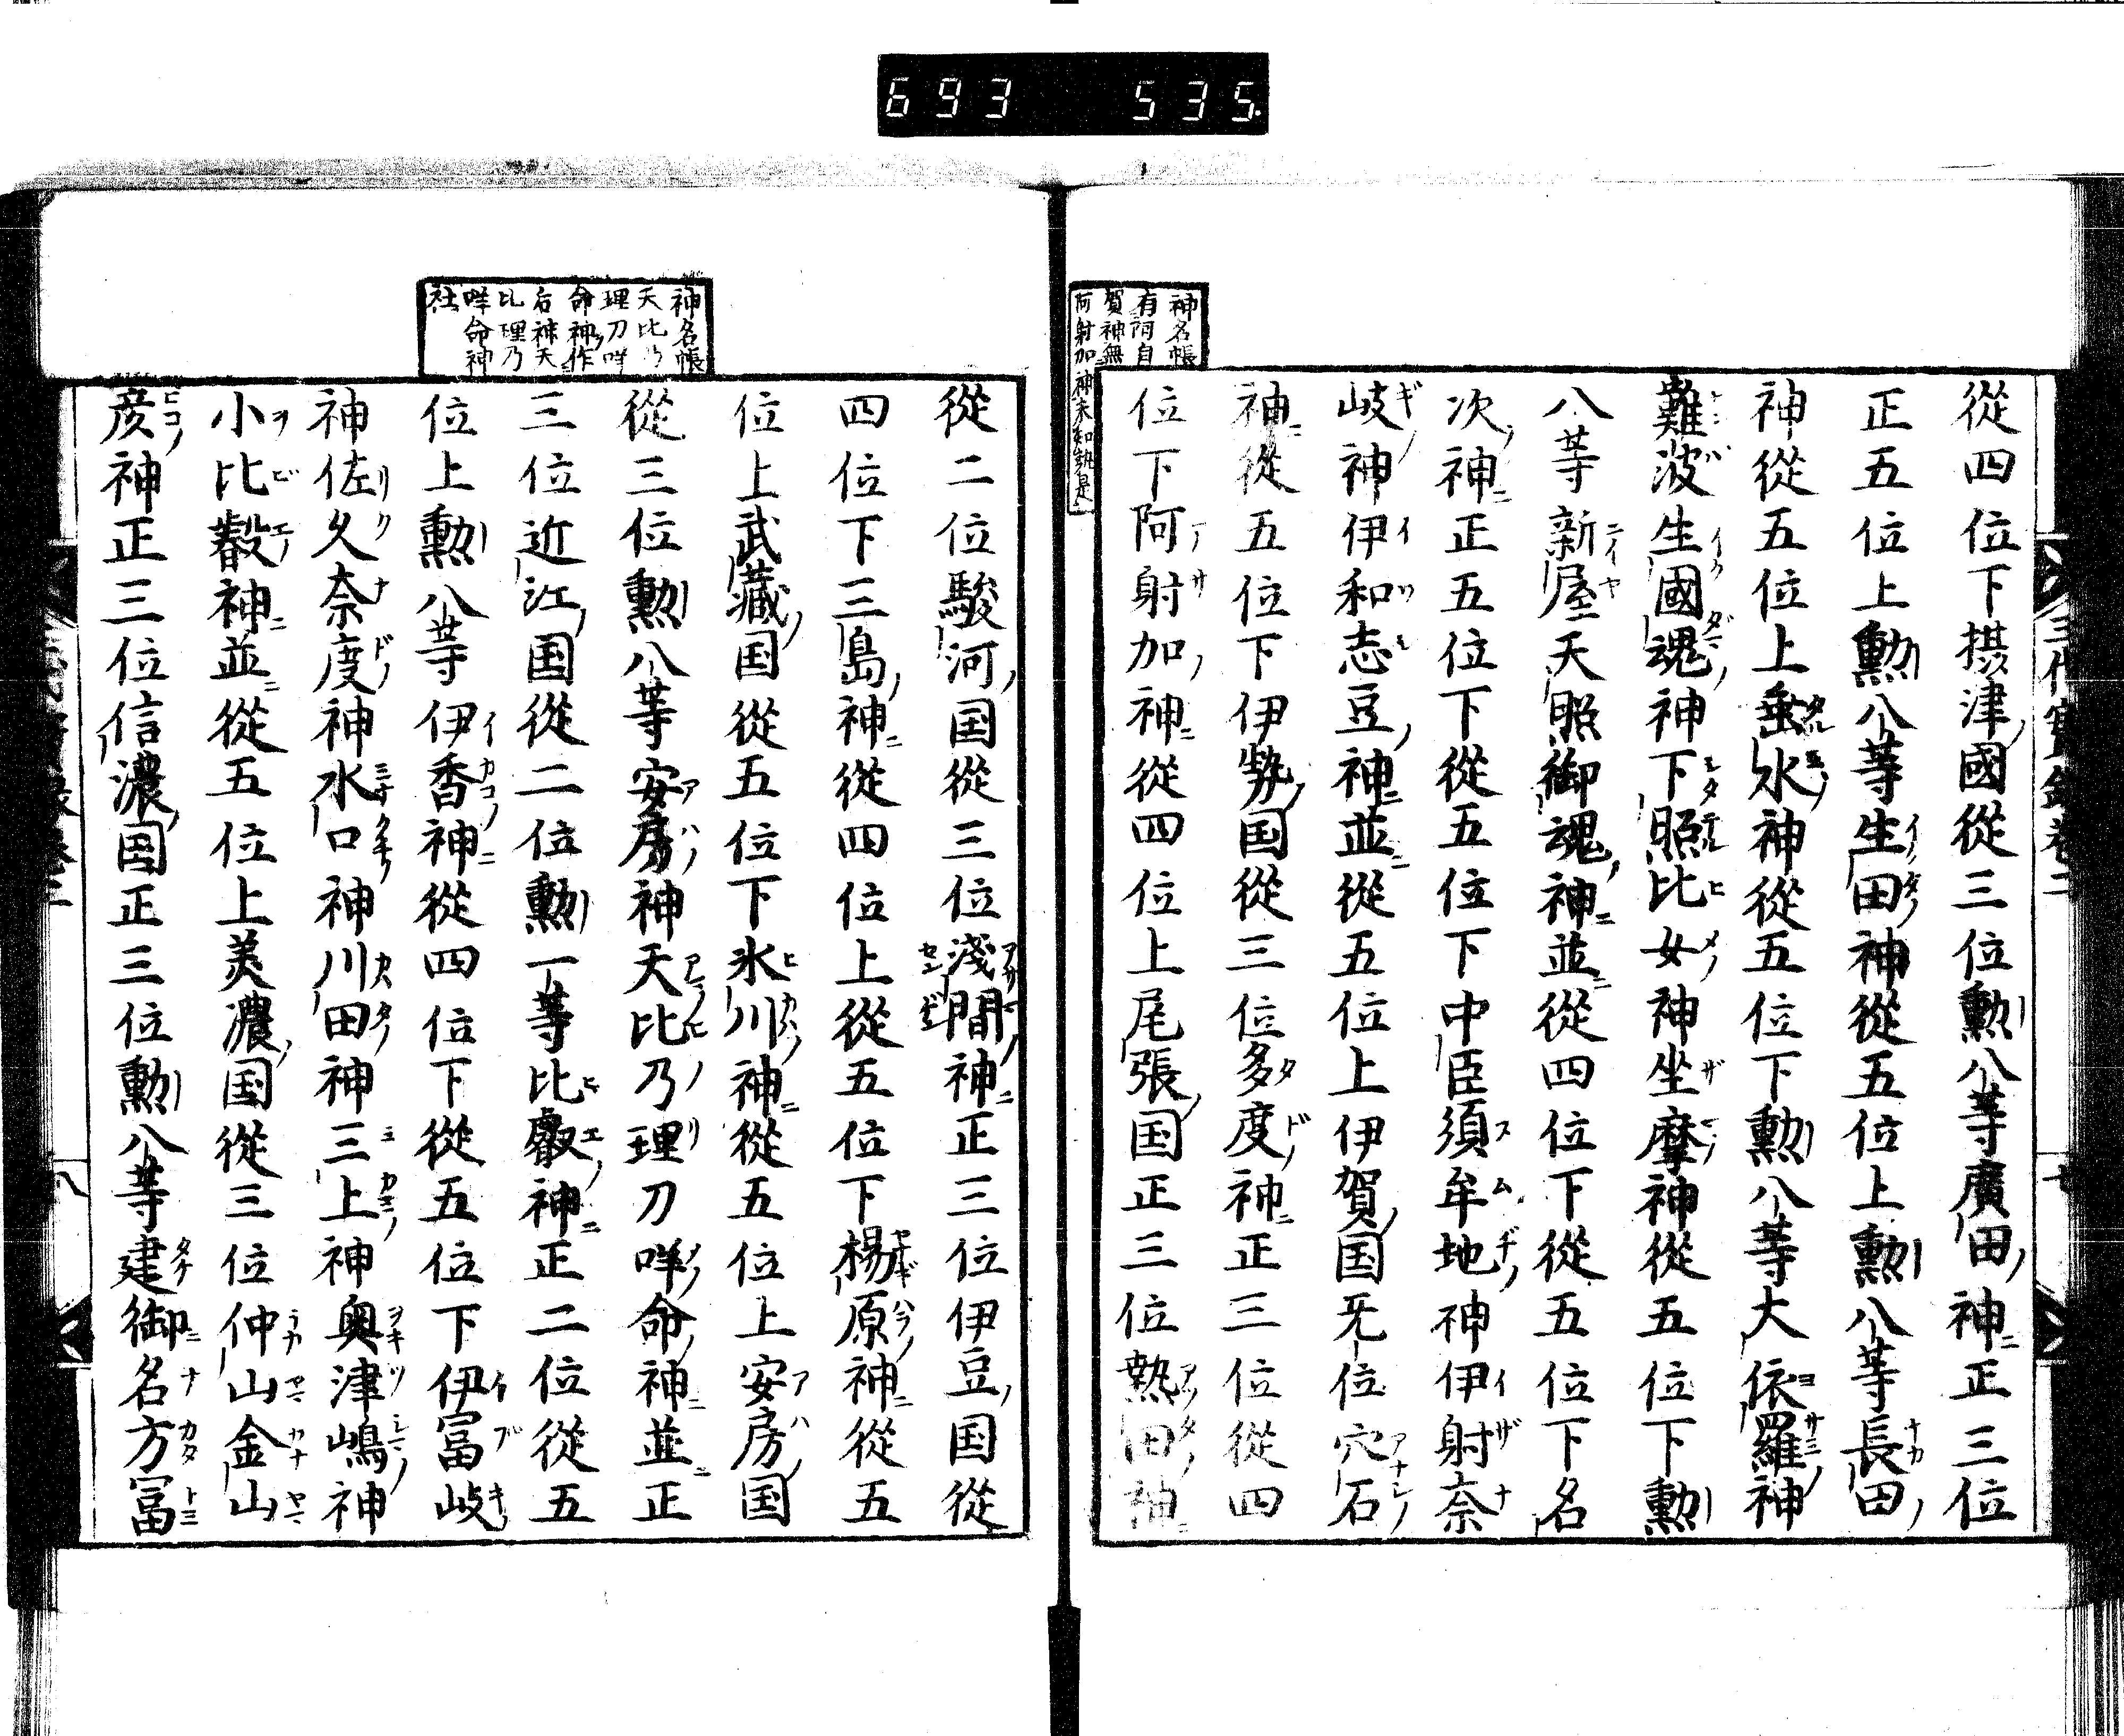 693 535.
從四位下攝津國從三位勲八等廣田神正三位
正五位上勲八等生田神從五位上勲八等長田
神從五位上垂水神從五位下勲八等大依羅神
難波生國魂神下照比女神坐摩神從五位下勲
八等新屋天照御魂神並從四位下從五位下名
次神正五位下從五位下中臣須牟地神伊射奈
岐神伊和志豆神並從五位上伊賀国旡位穴石
神從五位下伊勢国從三位多度神正三位從四
位下阿射加神從四位上尾張国正三位熱田神
神名帳
有阿自
賀神無
阿射加神未知孰是
從二位駿河国從三位淺間神正三位伊豆国從
四位下三島神從四位上從五位下楊原神從五
位上武藏国從五位下氷川神從五位上安房国
從三位勲八等安房神天比乃理刀咩命神並正
三位近江国從二位勲一等比叡神正二位從五
位上勲八等伊香神從四位下從五位下伊冨岐
神佐久奈度神水口神川田神三上神奥津嶋神
小比叡神並從五位上美濃国從三位仲山金山
彦神正三位信濃国正三位勲八等建御名方冨
神名帳
天比乃
理刀咩
命神作
后神天
比理乃
咩命神
社